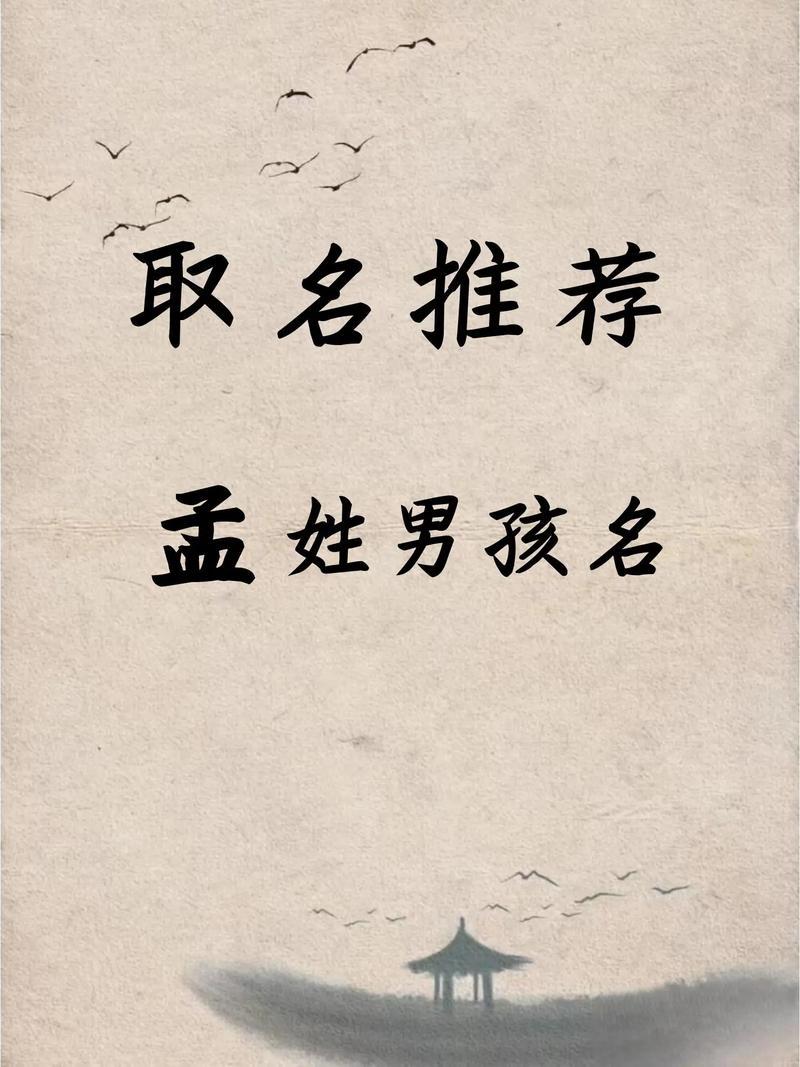 取名推荐
孟姓男孩名